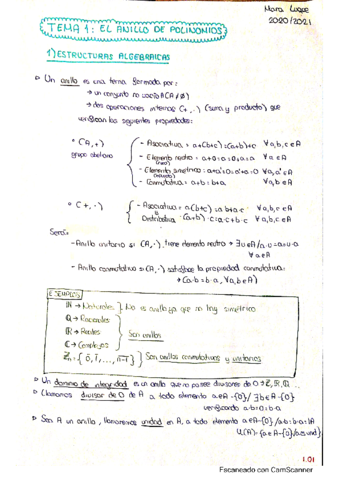 Mara Luque
2020/2021
TEMA 1: EL ANILLO DE POLINOMIOS
1) ESTRUCTURAS ALGEBRAICAS
Un anillo es una terna formada por:
→ un conjunto no vacío A (A≠∅)
→ dos operaciones internas (+,·) (suma y producto) que
verifican las siguientes propiedades:
(A,+)
grupo abeliano
- Asociativa = a+(b+c)=(a+b)+c ∀a,b,c∈A
- Elemento neutro = a+0=0+a=a ∀a∈A
- Elemento simétrico = a+a'=a'+a=0 ∀a,a'∈A
- Conmutativa = a+b=b+a ∀a,b∈A
(+,·)
- Asociativa = a(b·c)=(a·b)·c ∀a,b,c∈A
- Distributiva (a+b)·c=a·c+b·c ∀a,b,c∈A
Será:
- Anillo unitario si (A,·) tiene elemento neutro → ∃u∈A/a·u=a=u·a
∀a∈A
- Anillo conmutativo si (A,·) satisface la propiedad conmutativa:
→ (a·b=b·a, ∀a,b∈A)
EJEMPLOS
ℕ → Naturales } No es anillo ya que no hay simétrico
ℚ → Racionales
ℝ → Reales } Son anillos
ℂ → Complejos
ℤn={0̄,1̄,...,n-1} } Son anillos conmutativos y unitarios
Un dominio de integridad es un anillo que no posee divisores de 0 → ℤ,ℝ,ℚ...
Llamamos divisor de 0 de A a todo elemento a∈A-{0}/∃b∈A-{0}
verificando a·b=0=b·a
Sea A un anillo, llamaremos unidad en A, a todo elemento a∈A-{0}/a·b=b·a=1
U(A)={a∈A-{0}/a es und}
1.01
Escaneado con CamScanner